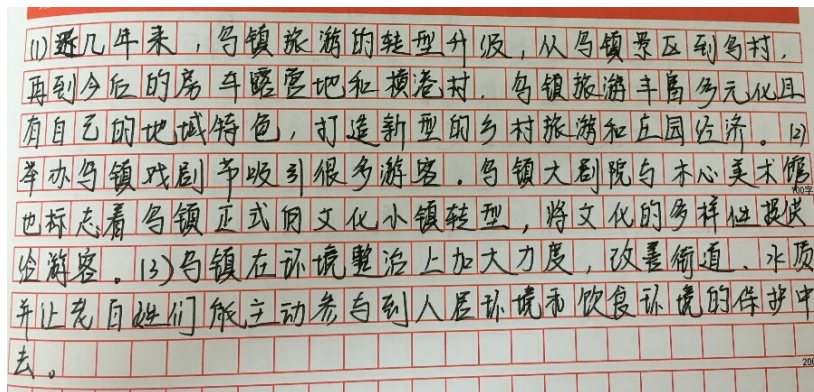 (1)近几年来,乌镇旅游的转型升级,从乌镇景区到乌村,
再到今后的房车露营地和横港村,乌镇旅游丰富多元化且
有自己的地域特色,打造新型的乡村旅游和庄园经济。(2)
举办乌镇戏剧节吸引很多游客。乌镇大剧院与木心美术馆
100字
也标志着乌镇正式向文化小镇转型,将文化的多样性提供
给游客。(3)乌镇在环境整治上加大力度,改善街道、水质
并让老百姓们能主动参与到人居环境和饮食环境的保护中
去。
200